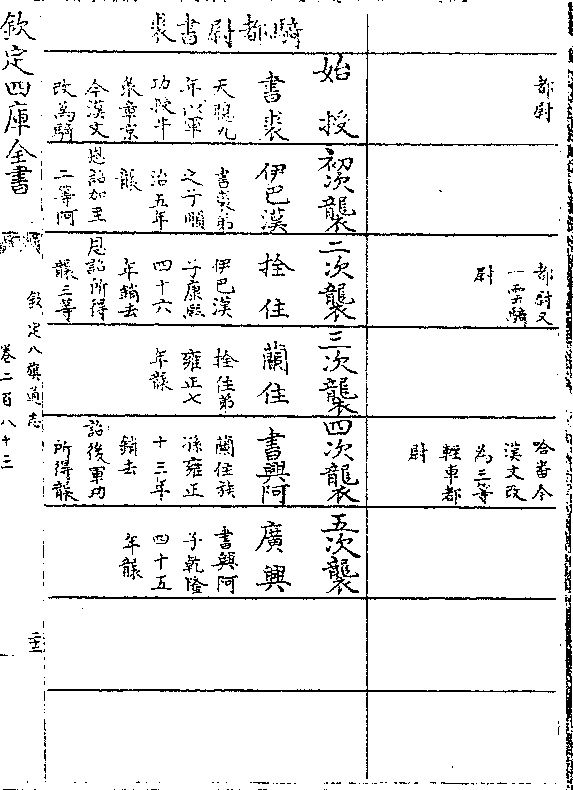 都尉
都尉又
一雲騎
尉
哈畨今
漢文改
為三等
輕車都
尉
騎都尉書裴
始授
書裴
天聰九
年以軍
功授牛
彔章京
今漢文
改為騎
初次襲
伊巴漢
書裴弟
之子順
治五年
襲
恩詔加至
二等阿
二次襲
拴住
伊巴漢
子康熙
四十六
年銷去
恩詔所得
襲三等
三次襲
蘭住
拴住弟
雍正七
年襲
四次襲
書興阿
蘭住族
孫雍正
十三年
銷去
詔後軍功
所得襲
五次襲
廣興
書興阿
子乾隆
四十五
年襲
欽定四庫全書
欽定八旗通志
卷二百八十三